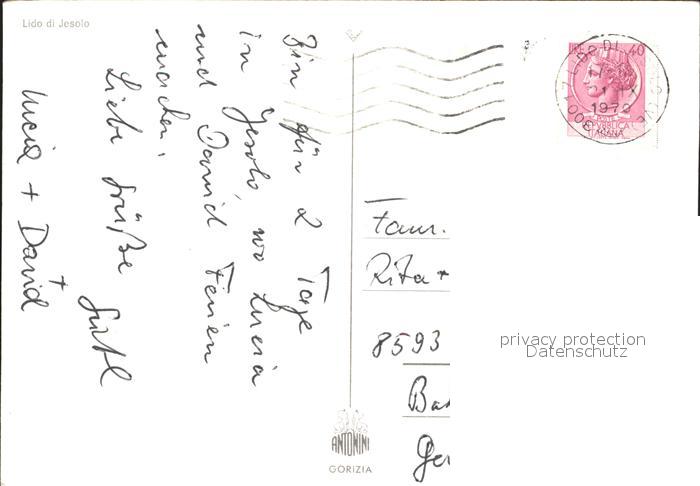 Lido di Jesolo
Bin für 2 Tage
in Jesolo, wo Lucia
und David Ferien
machen.
Liebe Grüße
Lucia + David
+
40
LIDO DI
1972
30017
POSTE
REPUBBLICA
ITALIANA
Fam.
Rita +
8593
Ba
Ger
privacy protection
Datenschutz
ANTONINI
GORIZIA